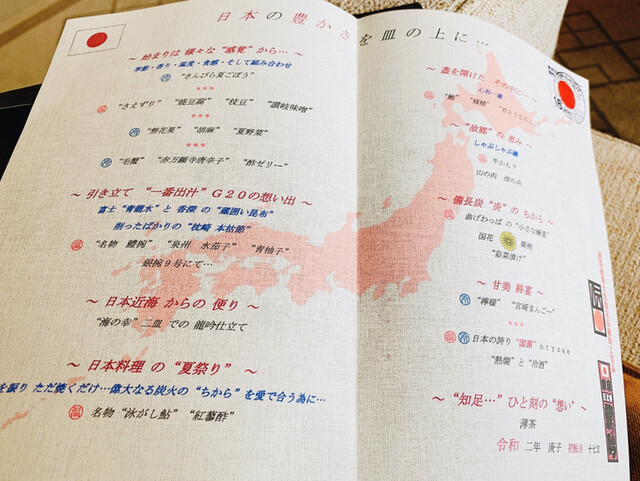 日本の豊かさを皿の上に…
～ 始まりは 様々な “感覚” から… ～
季節・香り・温度・食感・そして組み合わせ
“きんぴら夏ごぼう”
***
温 “さえずり” “焼豆腐” “枝豆” “讃岐味噌”
***
冷 “無花果” “胡麻” “夏野菜”
***
冷 “毛蟹” “赤万願寺唐辛子” “酢ゼリー”
～ 引き立て “一番出汁” G20の想い出 ～
富士 “青龍水” と 香深 の “蔵囲い昆布”
削ったばかりの “枕崎 本枯節”
温 “名物 鱧椀” “泉州 水茄子” “青柚子”
銀椀９号にて…
～ 日本近海 からの 便り ～
“海の幸” 二皿 での 龍吟仕立て
～ 日本料理 の “夏祭り” ～
を振り ただ焼くだけ…偉大なる炭火の “ちから” を愛で合う為に…
温 名物 “泳がし鮎” “紅蓼酢”
～ 蓋を開けた その中に… ～
～ “故郷” の 恵み ～
しゃぶしゃぶ
～ 備長炭 “炎” の ちから ～
温 曲げわっぱ の “小さな
国花 菊
“彩菜漬け”
～ 甘美 終宴 ～
冷 “檸檬” “宮崎まんごー”
***
温 冷 日本の誇り “国菌” oryzae
“熱燗” と “冷酒”
～ “知足…” ひと刻の “想い” ～
薄茶
令和 二年 庚子 月 十七日